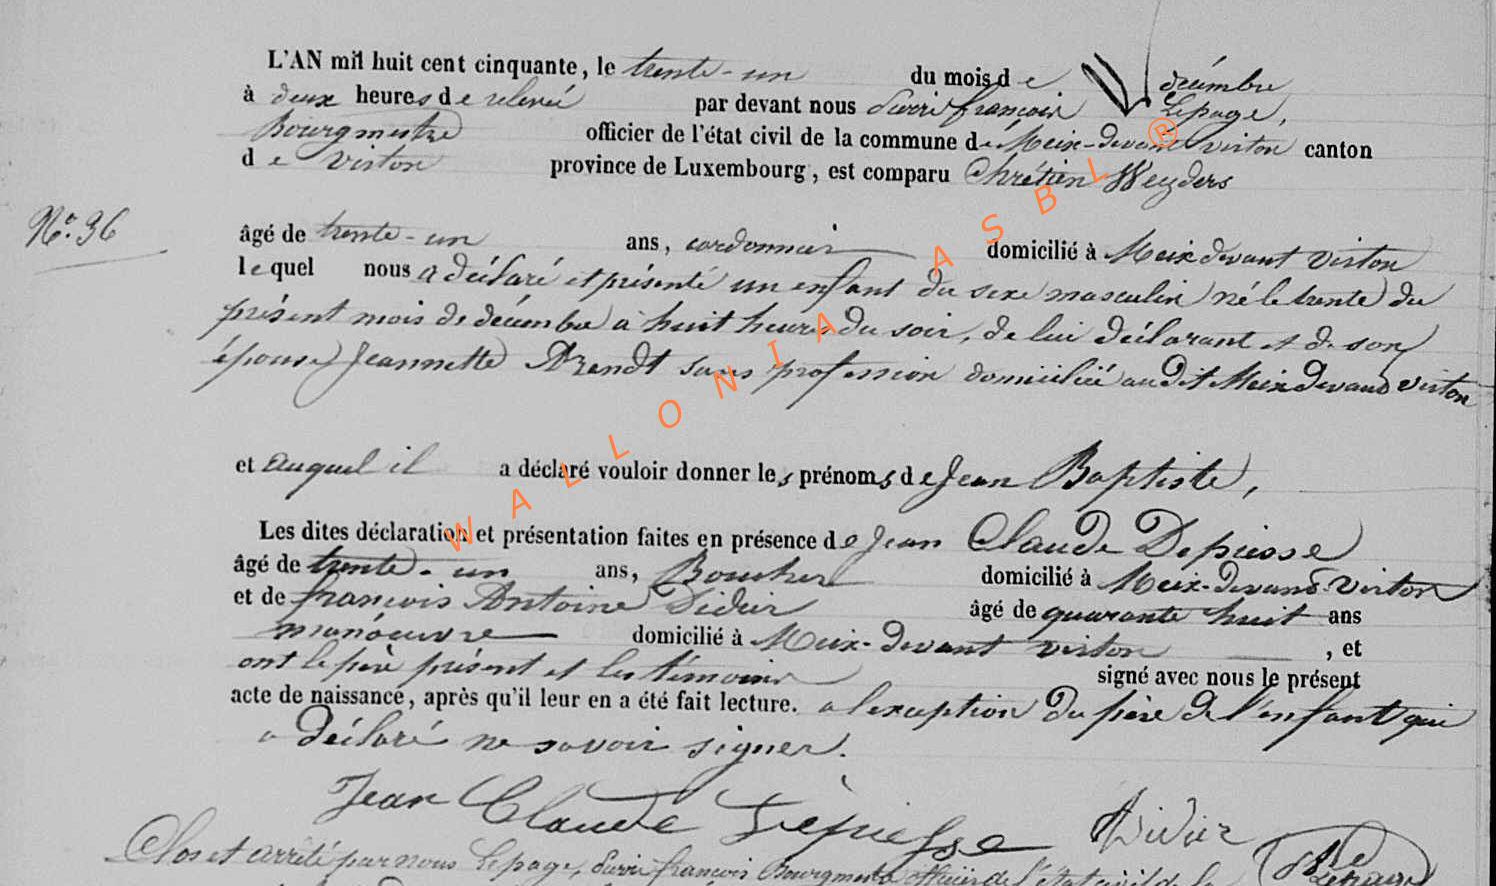 L'AN mil huit cent cinquante, le trente-un du mois de décembre
à deux heures de relevée par devant nous François Lepage,
Bourgmestre officier de l'état civil de la commune de Meix-devant virton canton
de virton province de Luxembourg, est comparu Chrétien Weyders
N.° 36
âgé de trente-un ans, cordonnier domicilié à Meix devant virton
lequel nous a déclaré et présenté un enfant du sexe masculin né le trente du
présent mois de décembre à huit heures du soir, de lui déclarant et de son
épouse Jeannette Arendt sans profession domiciliée au dit Meix devant virton
et auquel il a déclaré vouloir donner les prénoms de Jean Baptiste,
Les dites déclaration et présentation faites en présence de Jean Claude Depiesse
âgé de trente-un ans, Boucher domicilié à Meix-devant-virton
et de françois Antoine Didier âgé de quarante huit ans
manoeuvre domicilié à Meix-devant virton , et
ont le père présent et les témoins signé avec nous le présent
acte de naissance, après qu'il leur en a été fait lecture. a l'exception du père de l'enfant qui
a déclaré ne savoir signer.
Jean Claude Depiesse Didier
Clos et arrêté par nous Lepage, françois Bourgmestre officier de l'état civil de la
WALLONIA ASBL ®